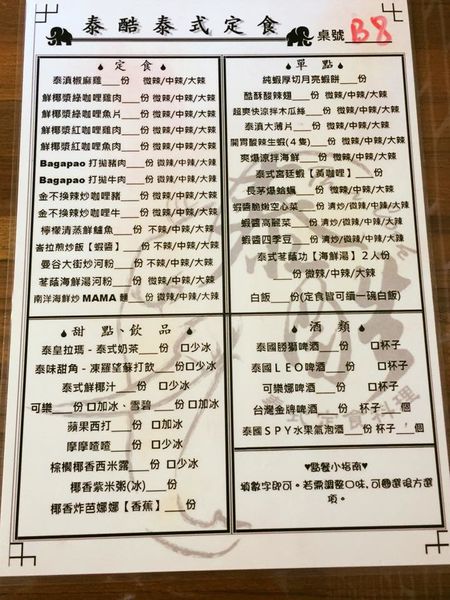 泰酷泰式定食
桌號 B8
定食
泰滇椒麻雞___份 微辣/中辣/大辣
鮮椰漿綠咖哩雞肉___份 微辣/中辣/大辣
鮮椰漿綠咖哩魚片___份 微辣/中辣/大辣
鮮椰漿紅咖哩雞肉___份 微辣/中辣/大辣
鮮椰漿紅咖哩魚肉___份 微辣/中辣/大辣
Bagapao 打拋豬肉___份 微辣/中辣/大辣
Bagapao 打拋牛肉___份 微辣/中辣/大辣
金不換辣炒咖哩豬___份 微辣/中辣/大辣
金不換辣炒咖哩牛___份 微辣/中辣/大辣
檸檬清蒸鮮鱸魚___份 不辣/中辣/大辣
崙拉煎炒飯【蝦醬】___份 不辣/中辣/大辣
曼谷大街炒河粉___份 不辣/中辣/大辣
茗蔭海鮮湯河粉___份 微辣/中辣/大辣
南洋海鮮炒 MAMA 麵___份 微辣/中辣/大辣
單點
純蝦厚切月亮蝦餅___份
酷酥酸辣翅___份 微辣/中辣/大辣
超爽快涼拌木瓜絲___份 微辣/中辣/大辣
泰滇大薄片___份 微辣/中辣/大辣
開胃酸辣生蝦(4隻)___份 微辣/中辣/大辣
爽爆涼拌海鮮___份 微辣/中辣/大辣
泰式宮廷蝦【黃咖哩】___份
長茅爆蛤蠣___份 微辣/中辣/大辣
蝦醬脆嫩空心菜___份 清炒/微辣/中辣/大辣
蝦醬高麗菜___份 清炒/微辣/中辣/大辣
蝦醬四季豆___份 清炒/微辣/中辣/大辣
泰式茗蔭功【海鮮湯】2人份
___份 微辣/中辣/大辣
白飯___份(定食皆可續一碗白飯)
甜點、飲品
泰皇拉瑪-泰式奶茶___份□少冰
泰味甜角-凍羅望蘇打飲___份□少冰
泰式鮮椰汁___份 □少冰
可樂___份 □加冰、雪碧___份 □加冰
蘋果西打___份 □加冰
摩摩喳喳___份 □少冰
棕櫚椰香西米露___份 □少冰
椰香紫米粥(冰)___份
椰香炸芭娜娜【香蕉】___份
酒類
泰國勝獅啤酒___份 □杯子
泰國LEO啤酒___份 □杯子
可樂娜啤酒___份 □杯子
台灣金牌啤酒___份 杯子___個
泰國SPY水果氣泡酒___份 杯子___個
♥點餐小指南♥
填數字即可。若需調整口味，可圈選後方選項。